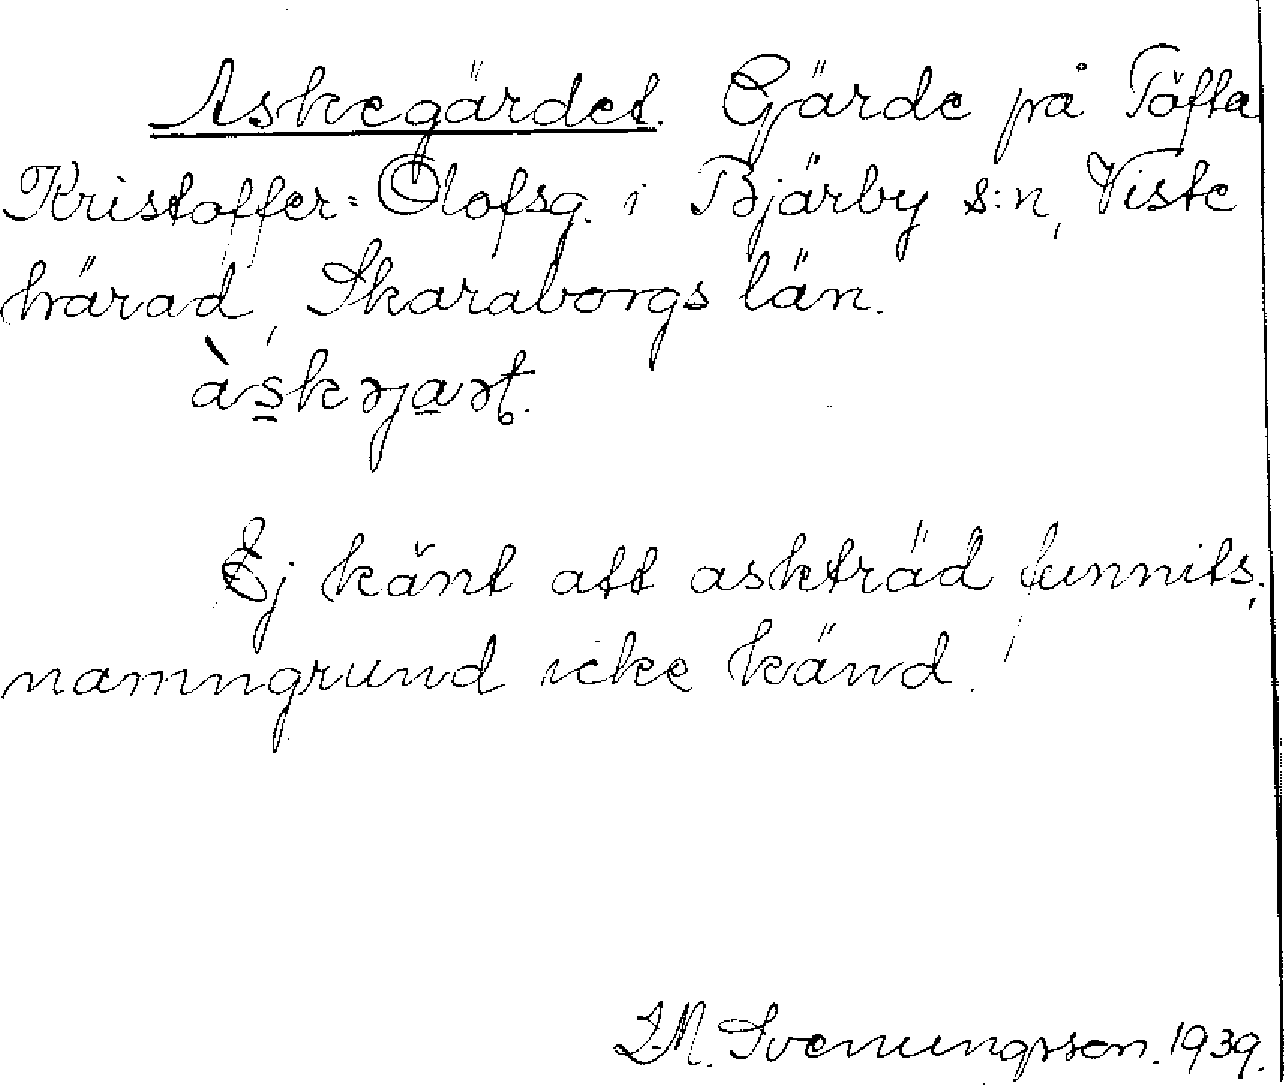 Askegärdet. Gärde på Töfta
Kristoffer-Olofsg. i Bjärby s:n, Viste
härad, Skaraborgs län.
àskəjaət.
Ej känt att askträd funnits;
namngrund icke känd.
I.M. Svenungsson. 1939.